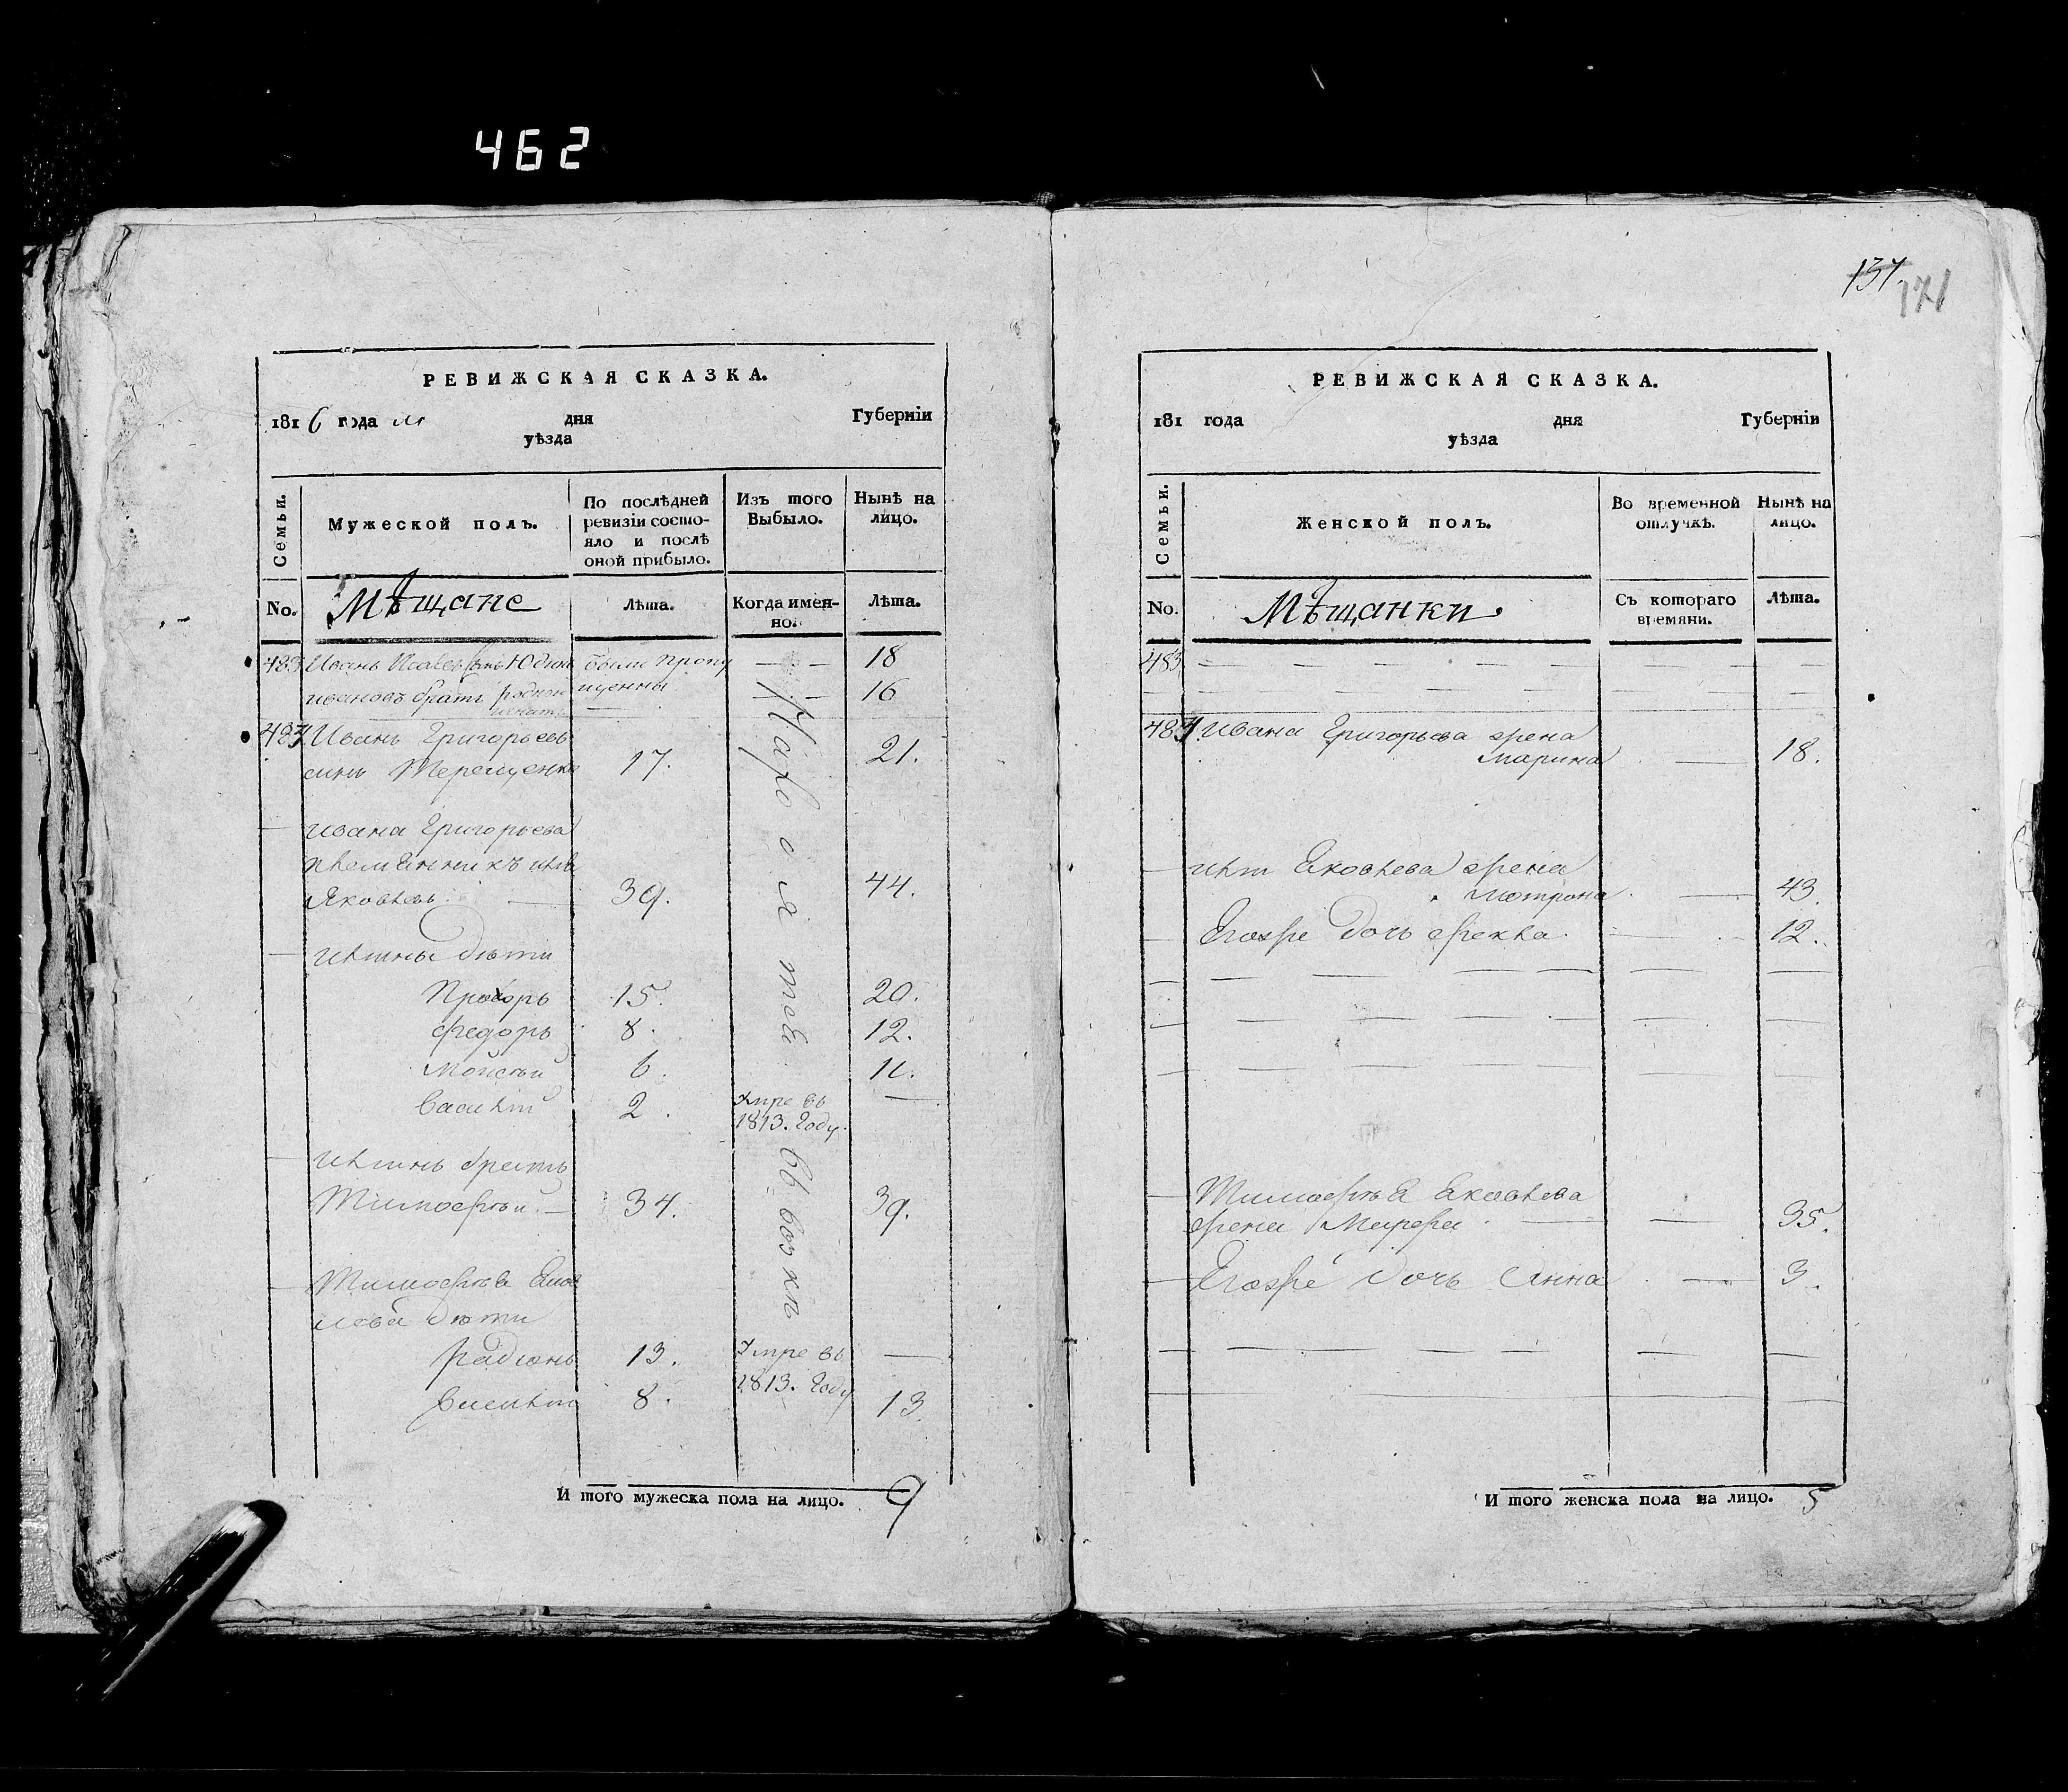 462
РЕВИЖСКАЯ СКАЗКА.
1816 года дня Губерніи
уѣзда
Семьи.
Мужеской полъ.
По послѣдней ревизіи состо-
яло и послѣ оной прибыло.
Изъ того Выбыло.
Нынѣ на лицо.
No.
Мѣщане
Лѣта.
Когда имен-
но.
Лѣта.
483 Иванъ были пропу — — 18
ивановъ братъ щенны 16
484 Иванъ Григорьевъ
сынъ Терещенко 17. 21.
Ивана Григорьева
племянникъ
Яковлевъ 39. 44.
дѣти
Прохоръ 15. 20.
Федоръ 8. 12.
Мойсѣй 6. 11.
Василій 2. умре въ
1813. Году. —
братъ
Тимофѣй — 34. 39.
Тимофѣя
дѣти
Радіонъ 13. Умре въ
1813. Году —
8. 13.
И того мужеска пола на лицо. 9
137.
171
РЕВИЖСКАЯ СКАЗКА.
181 года дня Губерніи
уѣзда
Семьи.
Женской полъ.
Во временной
отлучкѣ.
Нынѣ на
лицо.
No.
Мѣщанки.
Съ котораго
времяни.
Лѣта.
483
484 Ивана Григорьева жена
Марина — 18.
Яковлева жена
Мотрона — 43.
Егожъ дочь Фекла 12.
Тимофѣя Яковлева
жена Марфа — 35.
Егожъ дочь Анна — 3.
И того женска пола на лицо. 5